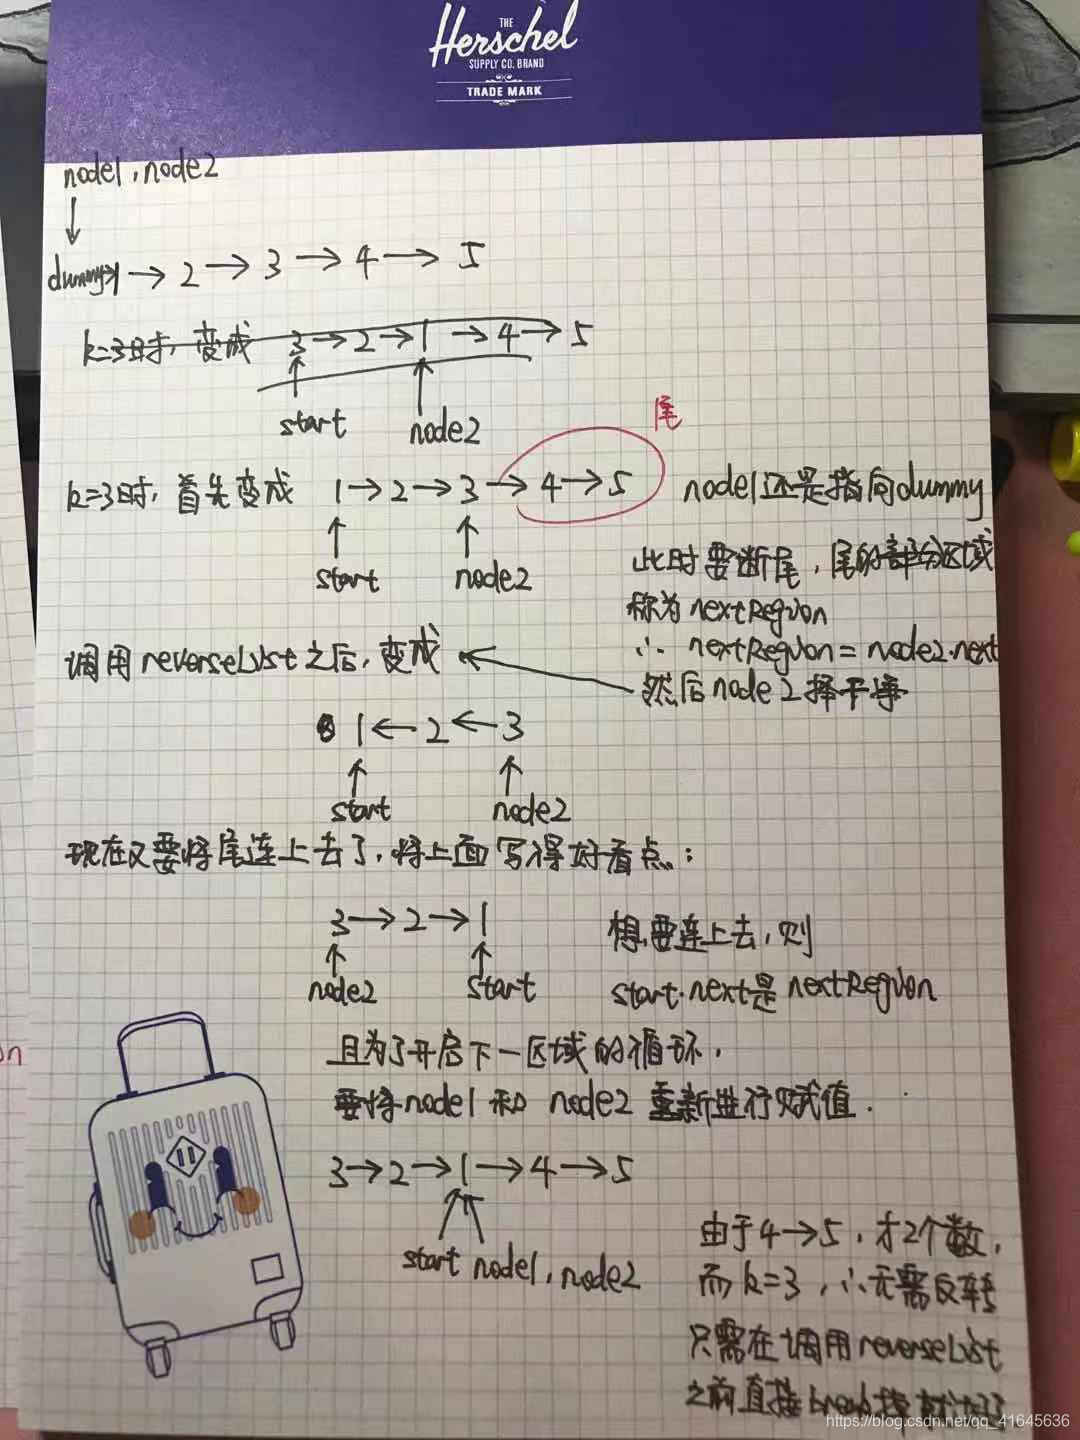 THE
Herschel
SUPPLY CO. BRAND
TRADE MARK
node1, node2
dummy 1 → 2 → 3 → 4 → 5
k=3时, 变成 3 → 2 → 1 → 4 → 5
start node2
尾
k=3时, 首先变成 1 → 2 → 3 → 4 → 5 node1还是指向dummy
start node2
此时要断尾, 尾的部分区域
称为nextRegion
∴ nextRegion = node2.next
调用reverseList之后, 变成
然后node2择干净
1 ← 2 ← 3
start node2
现在又要将尾连上去了, 将上面写得好看点:
3 → 2 → 1 想要连上去, 则
node2 start start.next是nextRegion
且为了开启下一区域的循环,
要将node1和node2重新进行赋值.
3 → 2 → 1 → 4 → 5
start node1, node2
由于4→5, 才2个数,
而k=3, ∴无需反转
只需在调用reverseList
之前直接break掉就好了
https://blog.csdn.net/qq_41645636